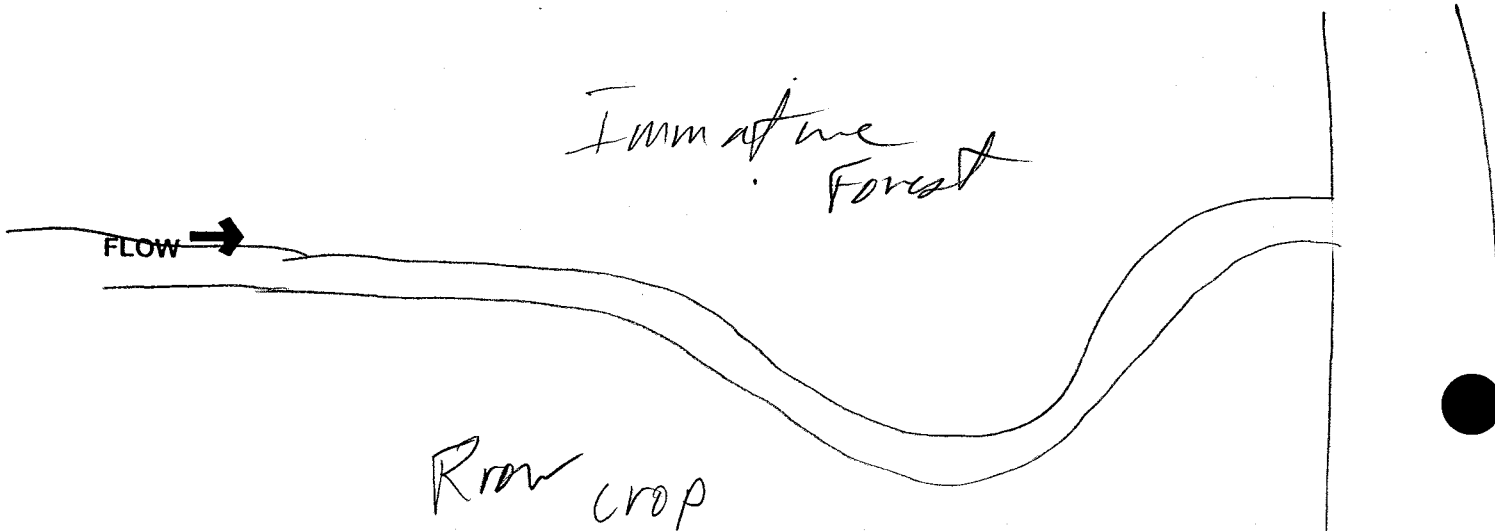 Immature
Forest
FLOW
Rrow
crop